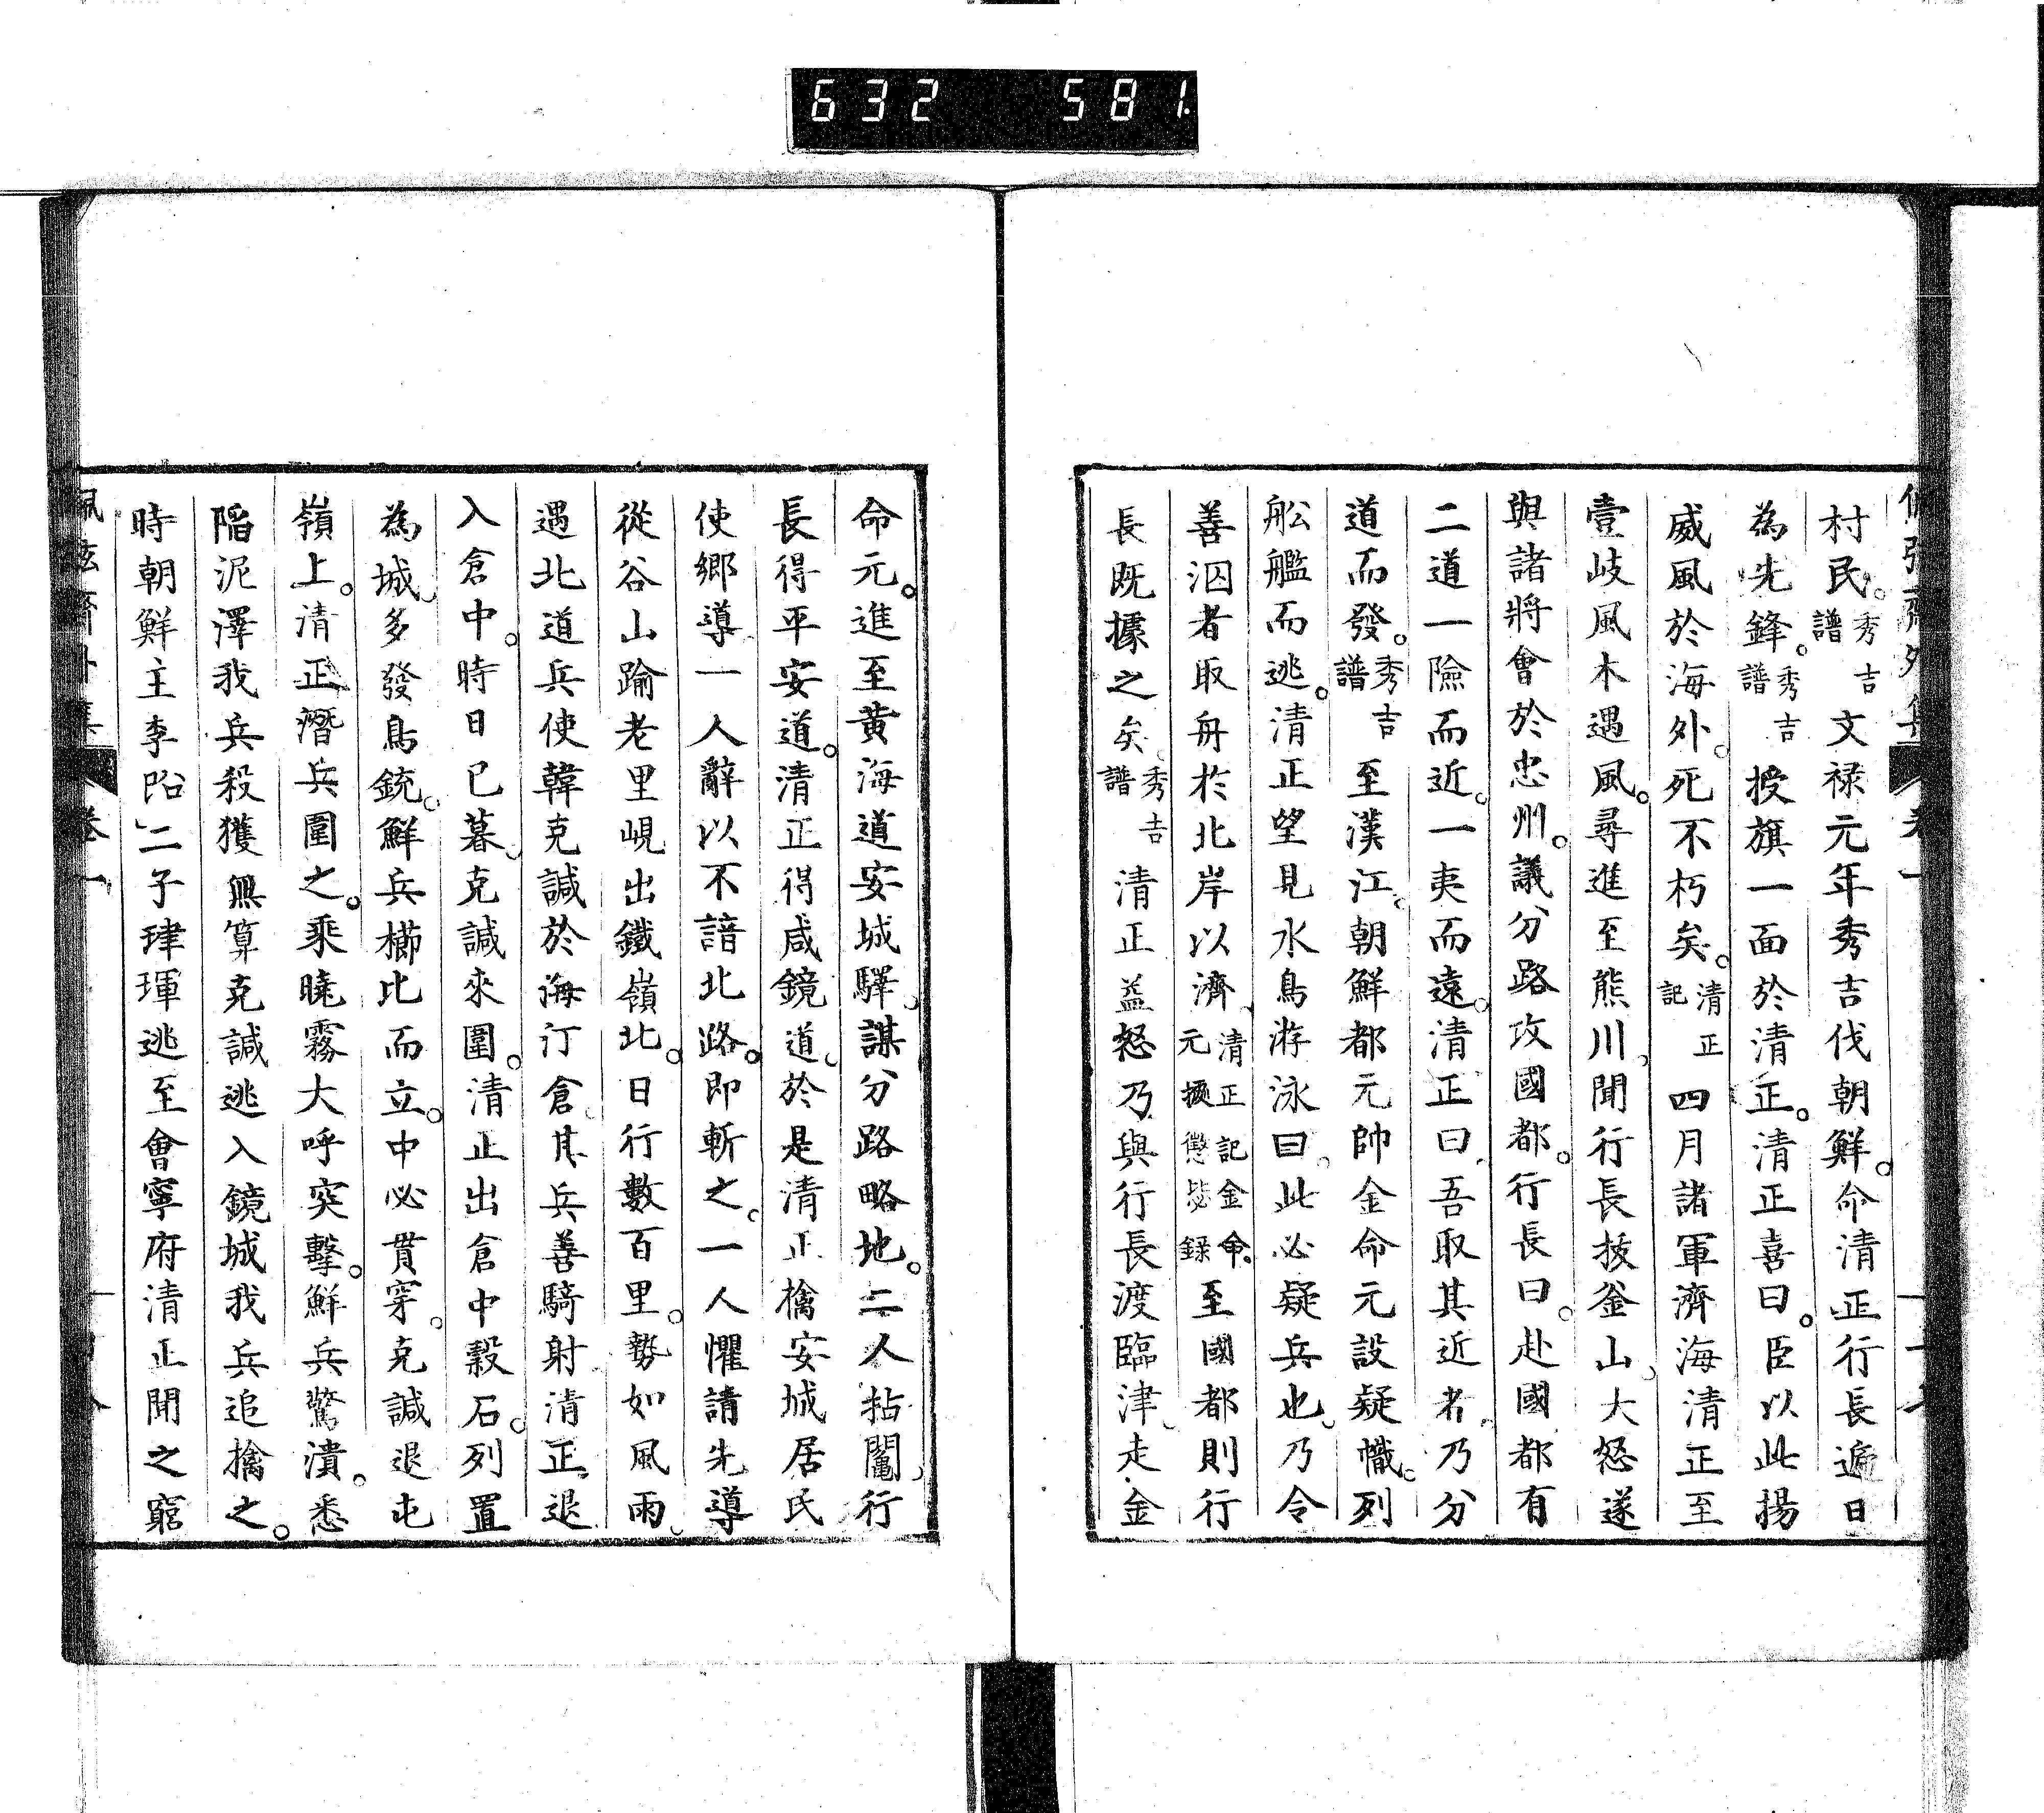 632 581
村民。秀吉譜文禄元年秀吉伐朝鮮。命清正行長遞日
為先鋒。秀吉譜授旗一面於清正。清正喜曰。臣以此揚
威風於海外。死不朽矣。清正記四月諸軍濟海清正至
壹岐風木遇風。尋進至熊川、聞行長抜釜山、大怒遂
與諸將會於忠州。議分路攻國都。行長曰。赴國都有
二道一險而近。一夷而遠。清正曰、吾取其近者。乃分
道而發。秀吉譜至漢江。朝鮮都元帥金命元設疑幟。列
舩艦而逃。清正望見水鳥游泳曰。此必疑兵也。乃令
善泅者取舟於北岸以濟、清正記金命元㨿懲毖録至國都則行
長既據之矣。秀吉譜清正益怒乃與行長渡臨津、走金
命元。進至黄海道安城驛、謀分路略地。二人拈鬮、行
長得平安道。清正得咸鏡道、於是清正擒安城居民
使郷導一人辭以不諳北路。即斬之。一人懼請先導
從谷山踰老里峴出鐵嶺北。日行數百里。勢如風雨、
遇北道兵使韓克諴於海汀倉。其兵善騎射清正退
入倉中。時日已暮、克諴來圍。清正出倉中穀石。列置
為城、多發鳥銃。鮮兵櫛比而立。中必貫穿。克諴退屯
嶺上。清正潛兵圍之。乘曉霧大呼突擊。鮮兵驚潰。悉
陷泥澤我兵殺獲無算克諴逃入鏡城我兵追擒之。
時朝鮮主李昖二子珒琿逃至會寧府清正聞之窮
卷一